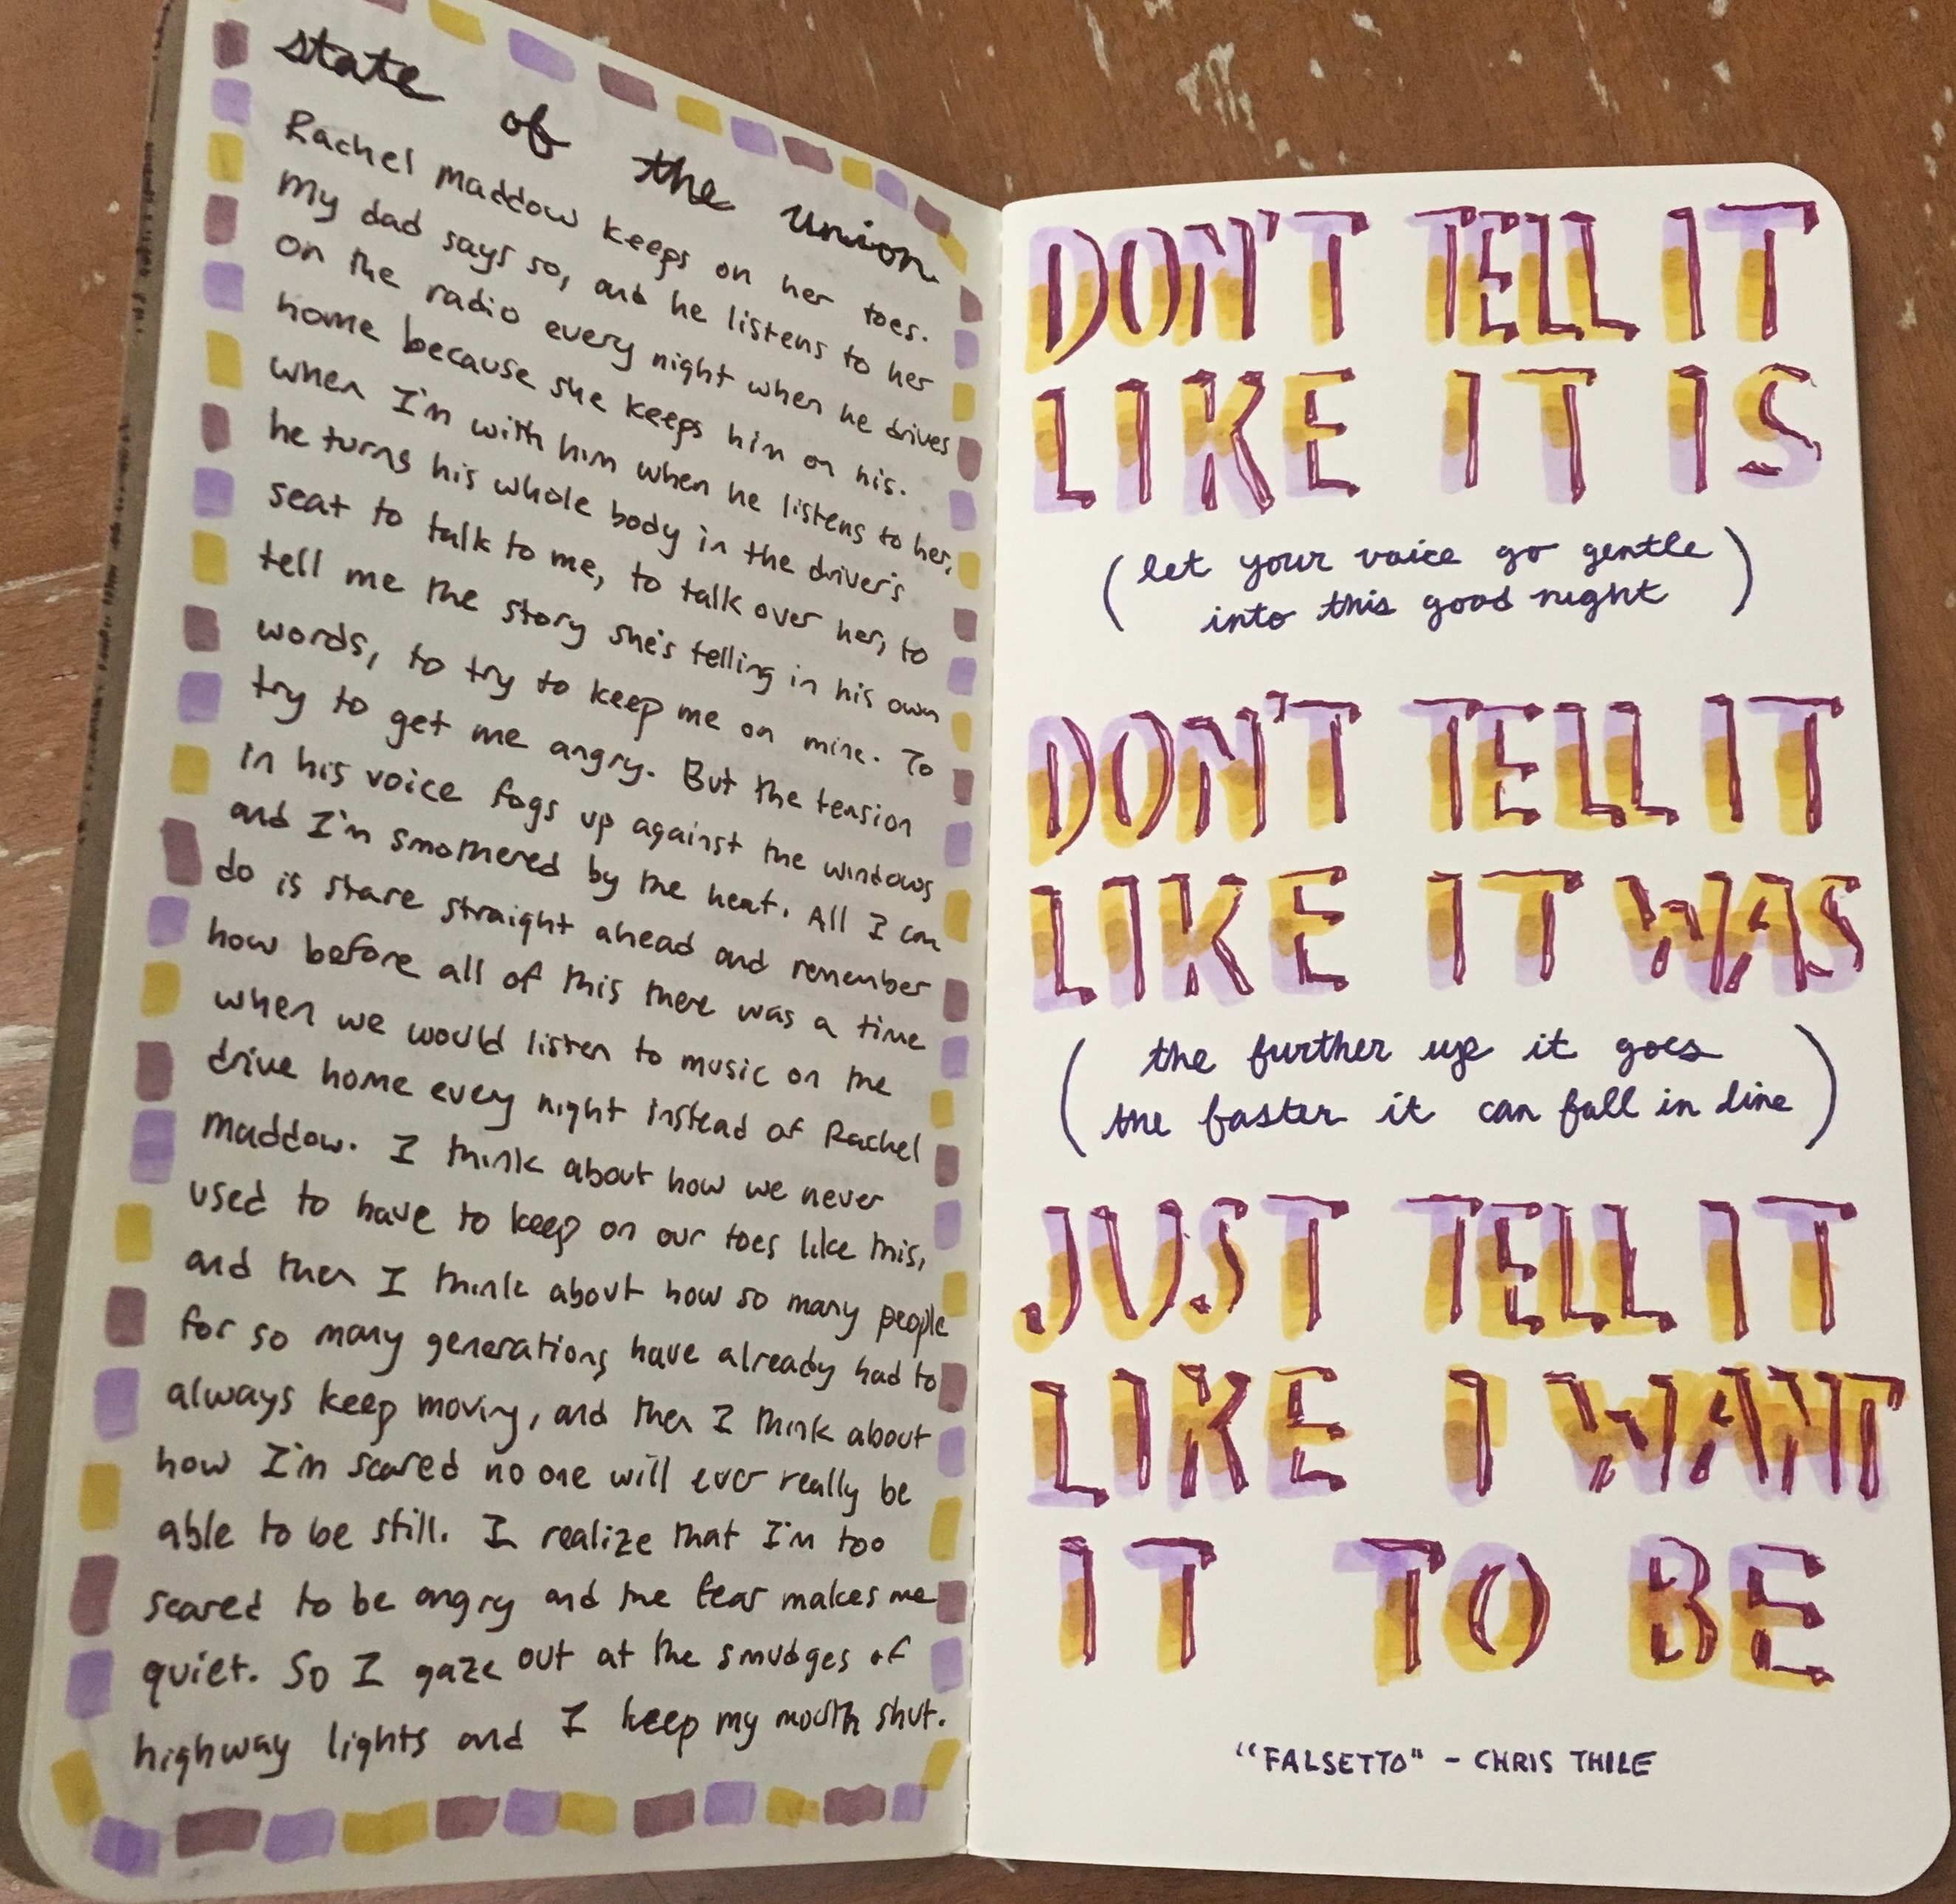 state of the union
Rachel maddow keeps on her toes.
My dad says so, and he listens to her
on the radio every night when he drives
home because she keeps him on his.
when I'm with him when he listens to her,
he turns his whole body in the driver's
seat to talk to me, to talk over her, to
tell me the story she's telling in his own
words, to try to keep me on mine. To
try to get me angry. But the tension
in his voice fogs up against the windows
and I'm smothered by the heat. All I can
do is stare straight ahead and remember
how before all of this there was a time
when we would listen to music on the
drive home every night instead of Rachel
maddow. I think about how we never
used to have to keep on our toes like this,
and then I think about how so many people
for so many generations have already had to
always keep moving, and then I think about
how I'm scared no one will ever really be
able to be still. I realize that I'm too
scared to be angry and the fear makes me
quiet. So I gaze out at the smudges of
highway lights and I keep my mouth shut.
DON'T TELL IT
LIKE IT IS
(let your voice go gentle
into this good night)
DON'T TELL IT
LIKE IT WAS
(the further up it goes
the faster it can fall in line)
JUST TELL IT
LIKE I WANT
IT TO BE
"FALSETTO" - CHRIS THILE